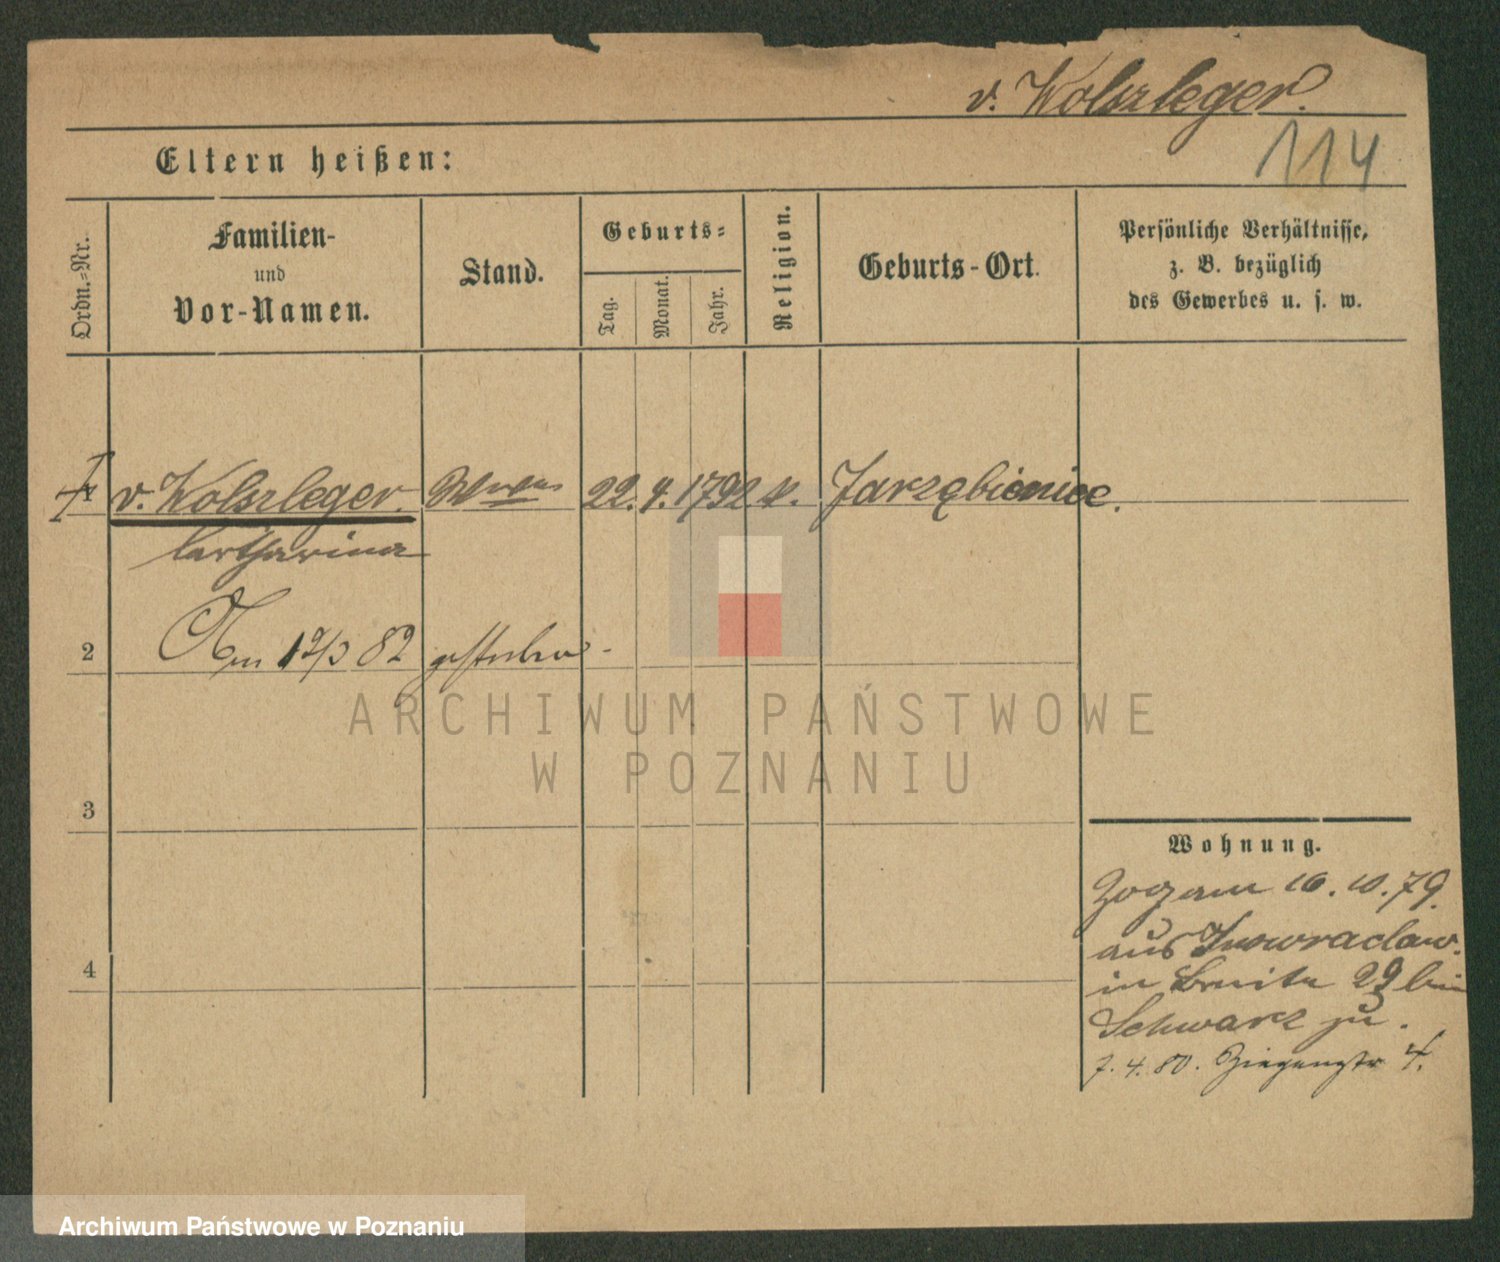 v. Wolszleger.
114
Eltern heißen:
Ordn.-Nr.
Familien-
und
Vor-Namen.
Stand.
Geburts-
Tag.
Monat.
Jahr.
Religion.
Geburts-Ort.
Persönliche Verhältnisse,
z. B. bezüglich
des Gewerbes u. s. w.
v. Wolszleger. Wwe 22. 4. 1792 k. Jarząbieniec.
Catharina
2 Am 19/3 82 gestorben.
ARCHIWUM PAŃSTWOWE
W POZNANIU
3
4
Wohnung.
Zog am 16. 10. 79.
aus Inowraclaw.
in Breite 29 bei
Schwarz zu.
7. 4. 80. Ziegenstr 4.
Archiwum Państwowe w Poznaniu